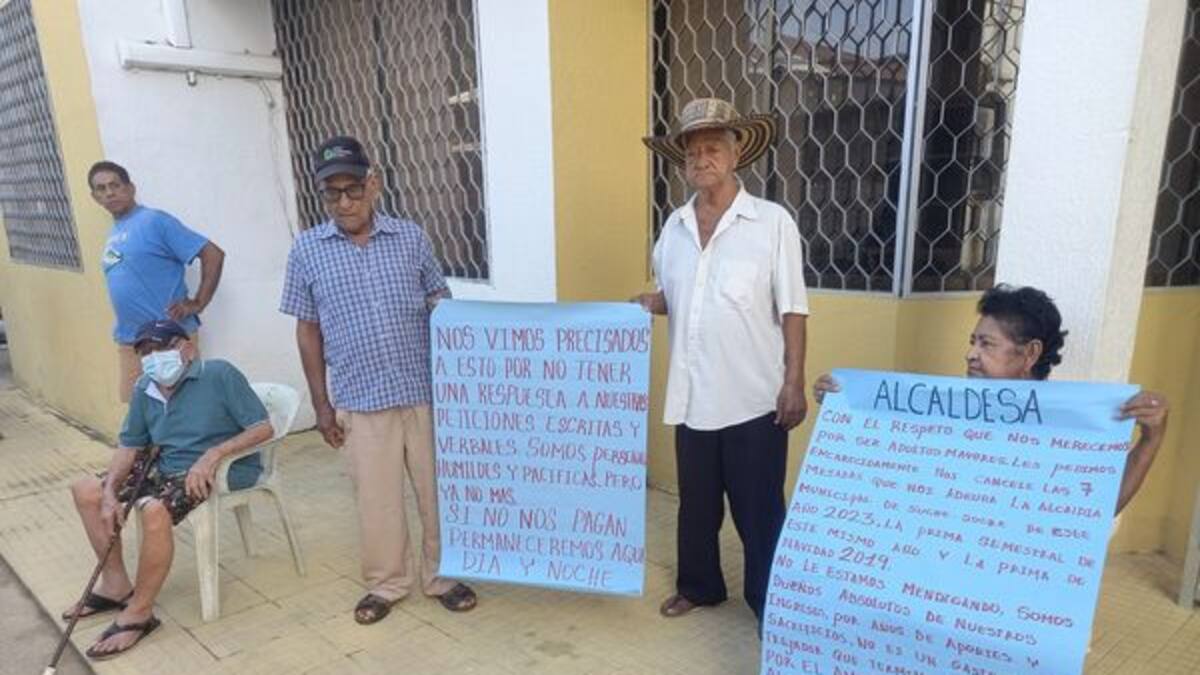 NOS VIMOS PRECISADOS
A ESTO POR NO TENER
UNA RESPUESTA A NUESTRAS
PETICIONES ESCRITAS Y
VERBALES. SOMOS PERSONAS
HUMILDES Y PACIFICAS. PERO
YA NO MAS.
SI NO NOS PAGAN
PERMANECEREMOS AQUI
DIA Y NOCHE
ALCALDESA
CON EL RESPETO QUE NOS MERECEMOS
POR SER ADULTOS MAYORES. LES PEDIMOS
ENCARECIDAMENTE NOS CANCELE LAS 7
MESADAS QUE NOS ADEUDA LA ALCALDIA
MUNICIPAL DE SUCRE SUCRE DE ESTE
AÑO 2023, LA PRIMA SEMESTRAL DE
ESTE MISMO AÑO Y LA PRIMA DE
NAVIDAD 2019.
NO LE ESTAMOS MENDIGANDO, SOMOS
DUEÑOS ABSOLUTOS DE NUESTROS
INGRESO, POR AÑOS DE APORTES Y
SACRIFICIOS, NO ES UN
QUE
POR EL